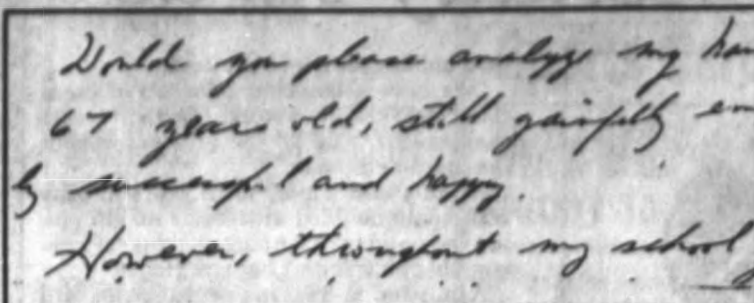 Would you please analyze my ha
67 years old, still gainfully em
ly successful and happy.
However, throughout my school